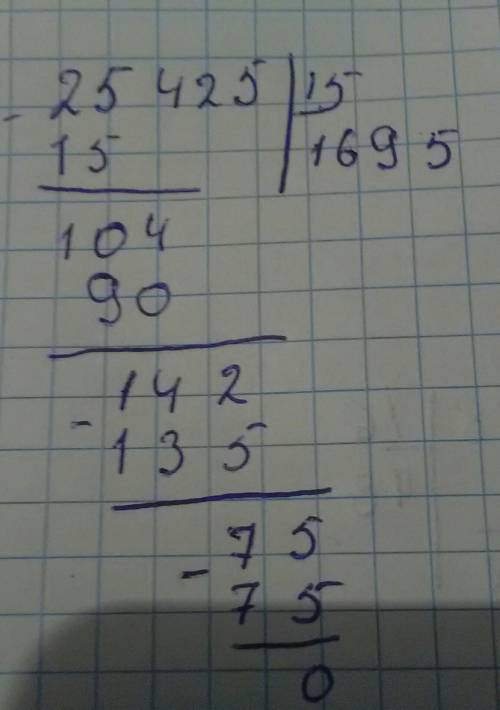 - 25425 | 15
15 | 1695
104
90
142
- 135
75
- 75
0